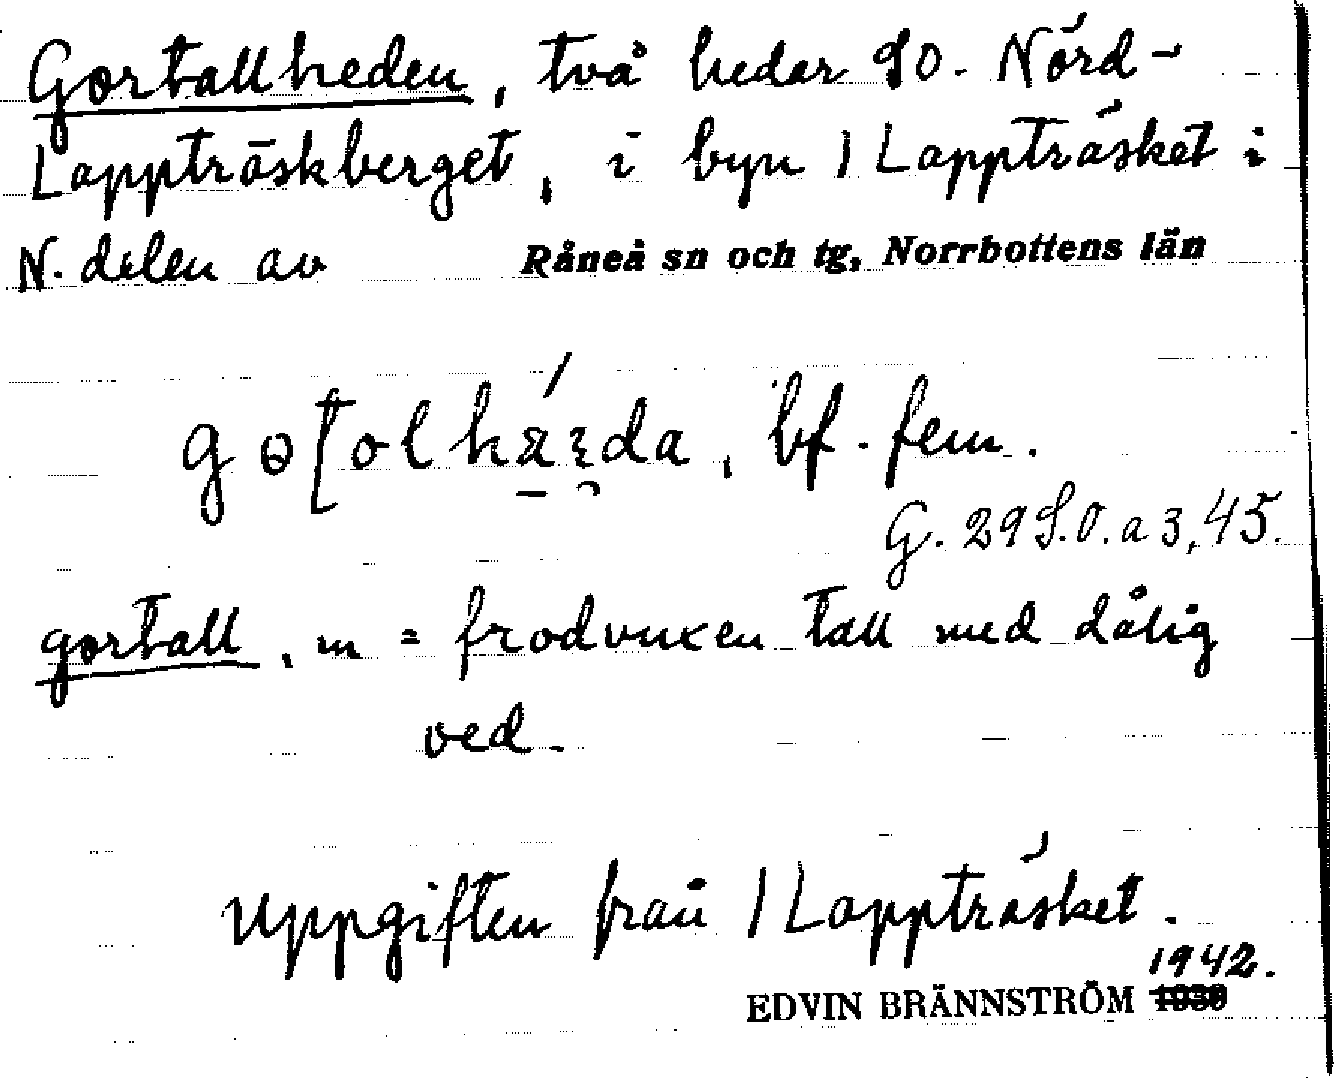 Gortallheden, två hedar SO. Nörd-
Lappträskberget, i byn /Lappträsket i
N. delen av Råneå sn och tg, Norrbottens län
bf. fem.
G. 29 S.O. a 3,45.
gortall, m = frodvuxen tall med dålig
ved.
Uppgiften från /Lappträsket.
1942.
EDVIN BRÄNNSTRÖM 1930